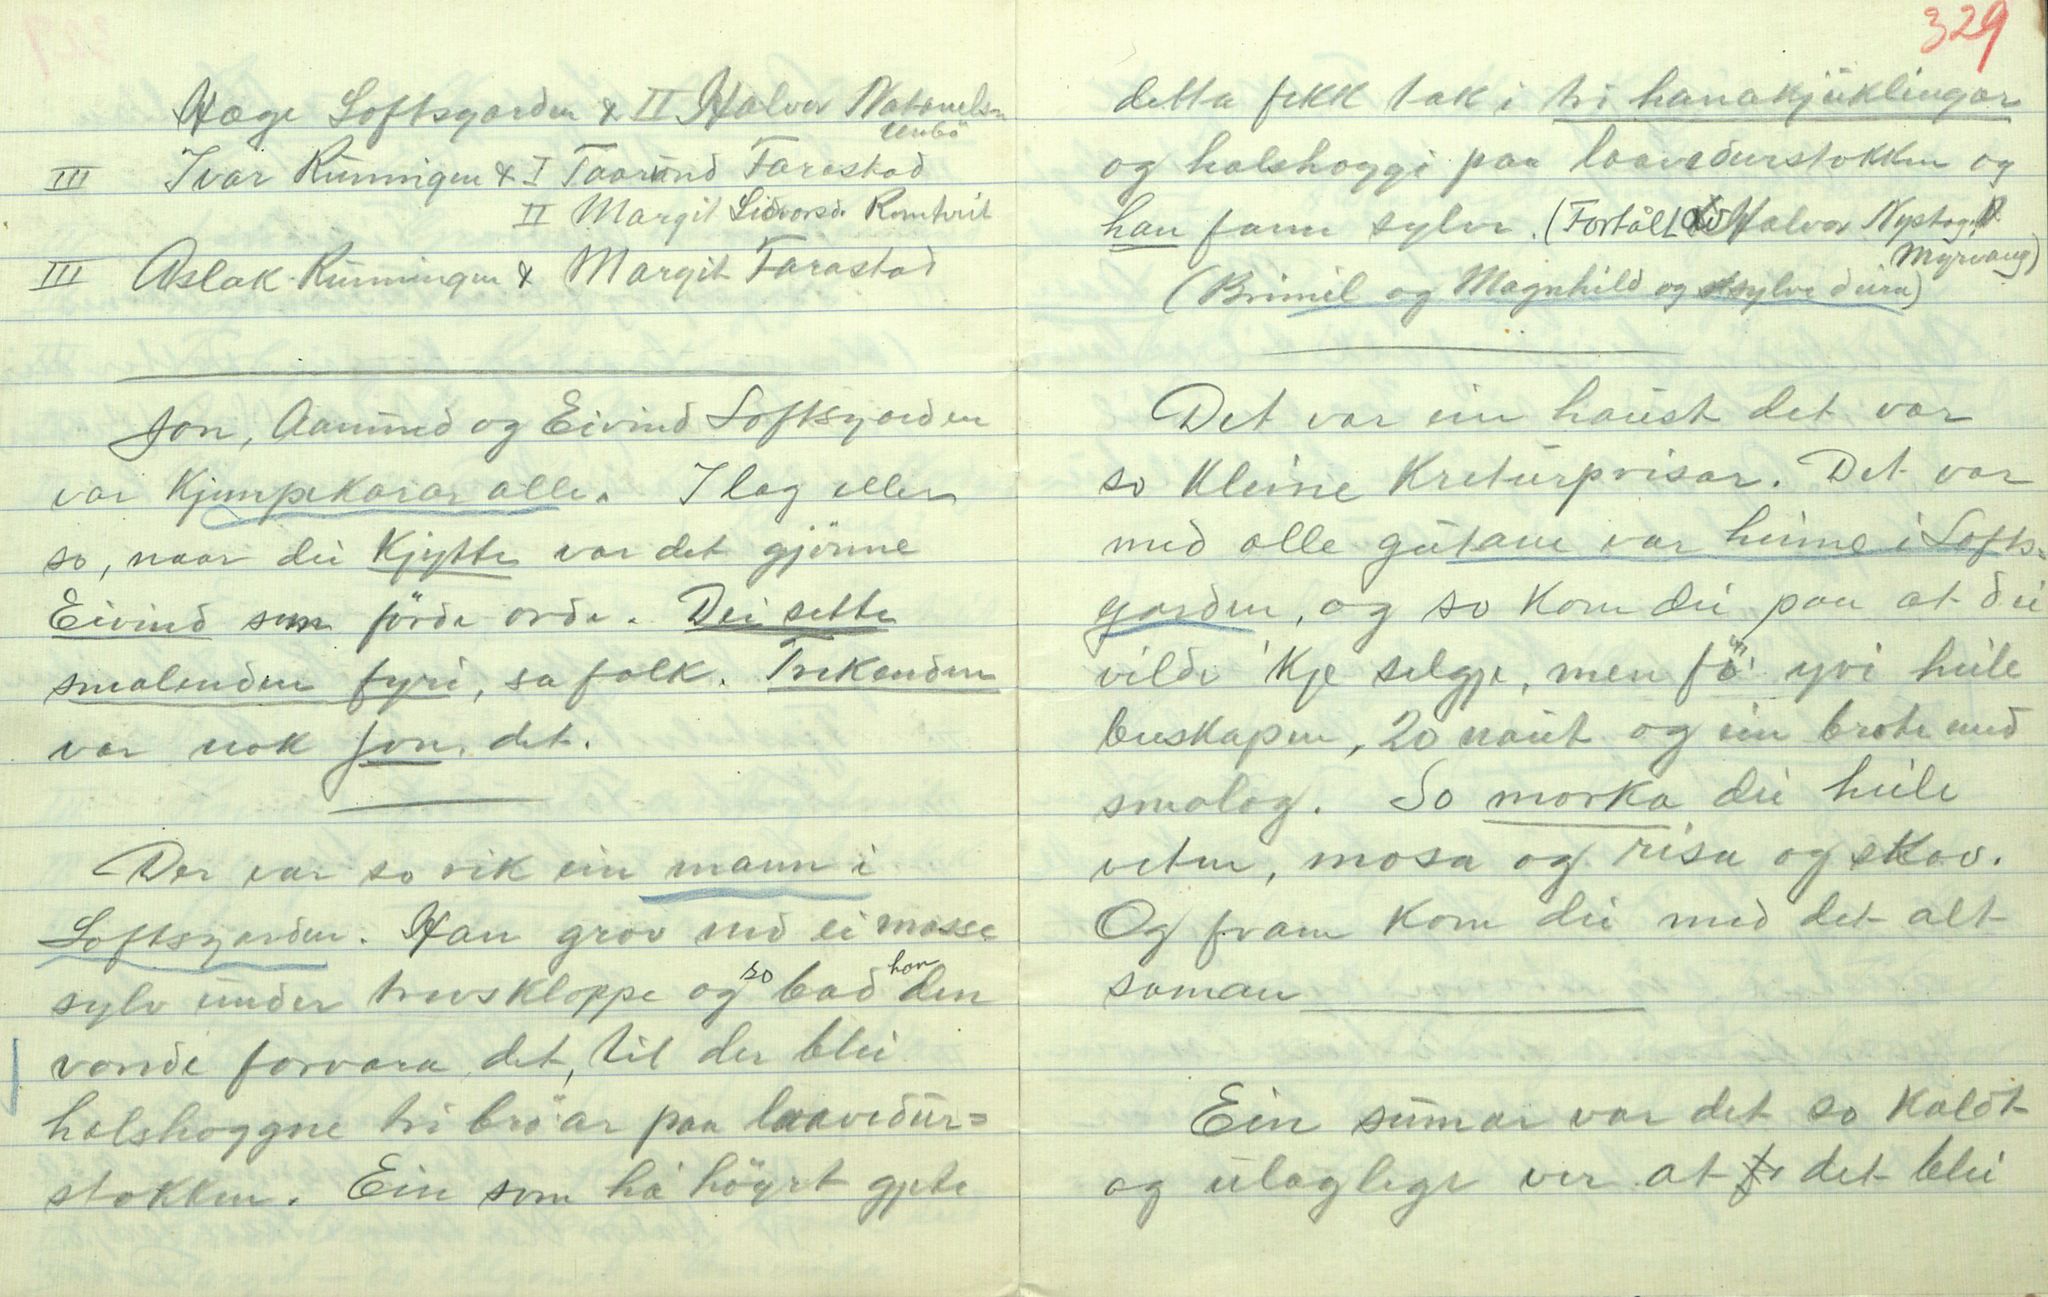 Hæge Loftsgarden & II Halvor Natanielsn
Urebö
III Ivar Rünningen & I Taaründ Farastad
II Margit Sidvorsd. Romtveit
III Aslak Rünningen & Margit Farastad
Jon, Aamünd og Eivind Loftsgarden
var Kjempekarar alle. I lag eller
so, naar dei Kjytte var det gjönne
Eivind som förde orde. Dei sette
smalenden fyri, sa folk. Trekenden
var nok Jon, det.
Der var so rik ein mann i
Loftsgarden. Han grov ned ei masse
sylv ünder treskloppe og so bad han den
vonde forvara det, til der blei
halshoggne tri brö'ar paa laavedür=
stokken. Ein som ha höyrt gjete
329
detta fekk tak i tri hanakjüklingar
og halshoggi paa laavedurstokken og
han fann sylve. (Fortålt av Halvor Nystog
Myrvang)
(Brimil og Magnhild og sylve deira)
Det var ein haüst det var
so kleine Kretürprisar. Det var
med alle gütane var heime i Lofts=
garden, og so kom dei paa at dei
vilde 'kje selgje, men fö' yvi heile
buskapen, 20 naüt og ein brote med
smalog. So morka dei heile
veten, mosa og risa og skav.
Og fram kom dei med det alt
saman
Ein sümar var det so kaldt
og ülaglegt ver at det blei